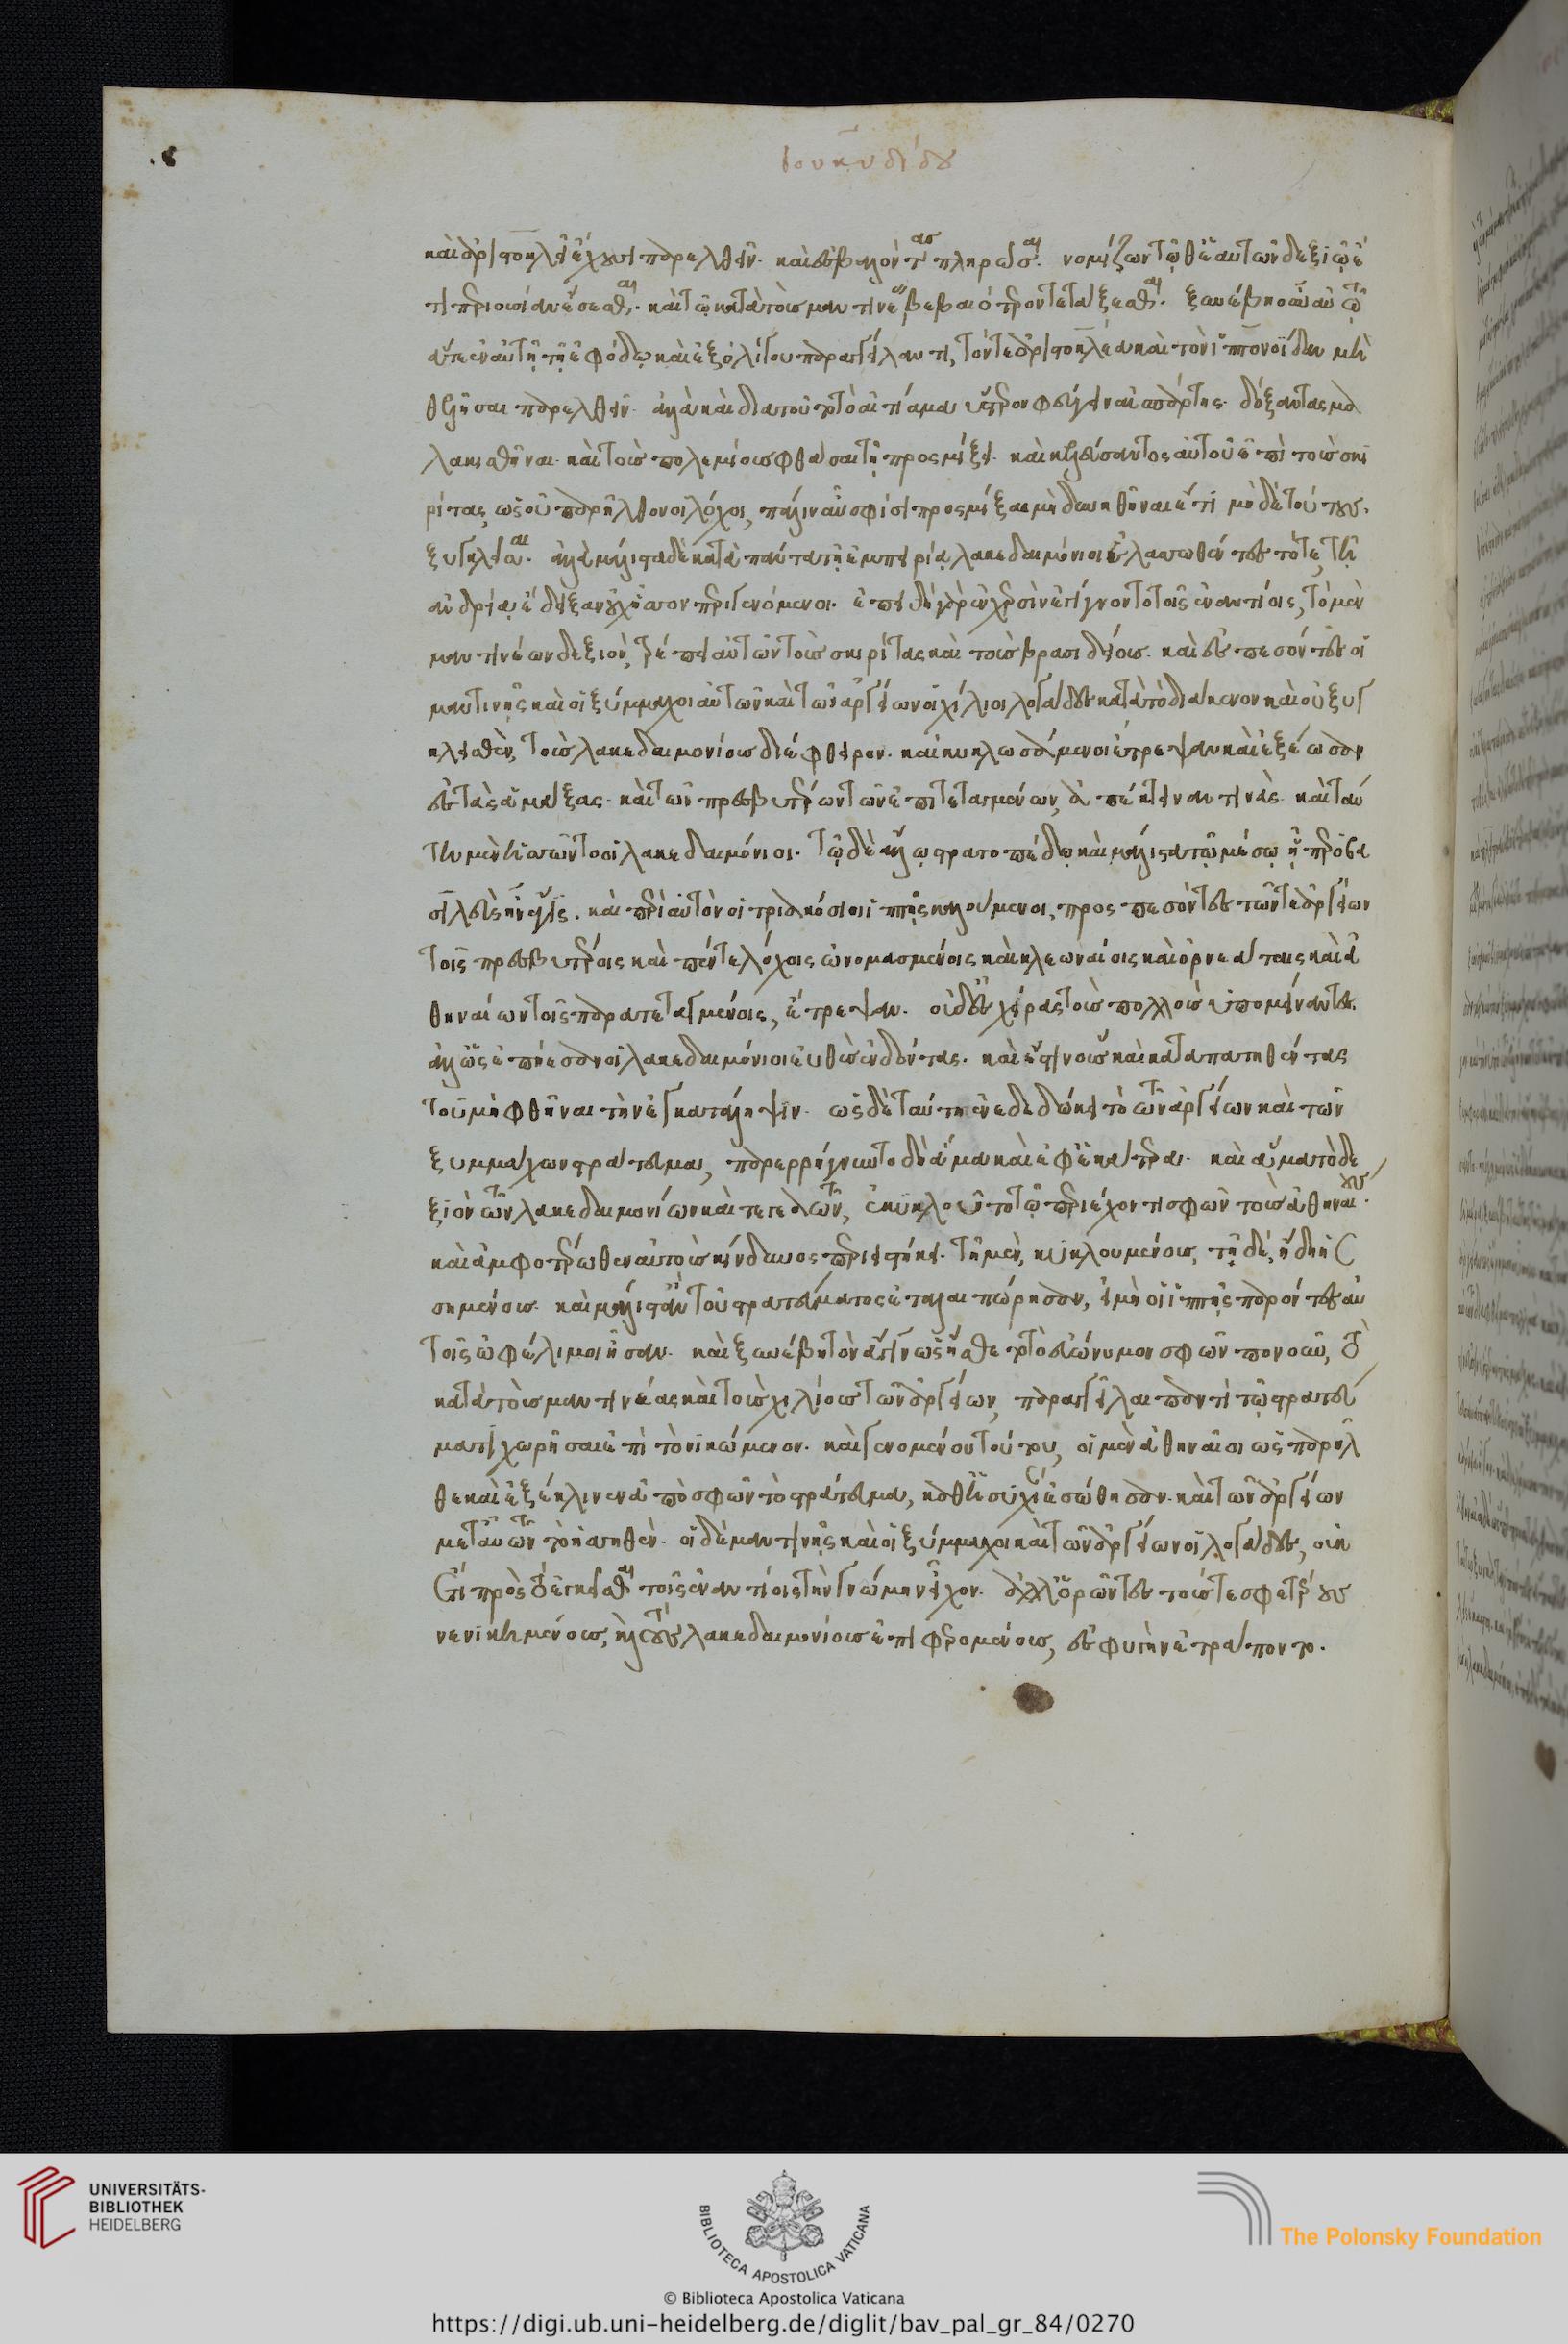 θουκυδίδου
καὶ ἀριστοκλεῖ ἔχουσι παρελθεῖν· καὶ ἐσβαλόντας πληρῶσαι· νομίζων τῷ θ' ἑαυτῶν δεξιῷ ἔ
τι περιουσίαν ἔσεσθαι· καὶ τῷ κατὰ τοὺς μαντινέας βεβαιότερον τετάξεσθαι· ξυνέβη οὖν αὐτῷ
ἅτε ἐν αὐτῇ τῇ ἐφόδῳ καὶ ἐξ ὀλίγου παραγγείλαντι, τόν τε ἀριστοκλέα καὶ τὸν ἱππονοΐδαν μὴ
θελῆσαι παρελθεῖν· ἀλλὰ καὶ διὰ τοῦτο τὸ αἰτίαμα ὕστερον φεύγειν ἐκ σπάρτης· δόξαντας μα
λακισθῆναι· καὶ τοὺς πολεμίους φθάσαι τῇ προσμίξει· καὶ κελεύσαντος αὐτοῦ ἐπὶ τοὺς σκι
ρίτας, ὡς οὐ παρῆλθον οἱ λόχοι, πάλιν αὖ σφίσι προσμίξαι μὴ δυνηθῆναι ἔτι μηδὲ τούτους·
ξυγκλεῖσαι· ἀλλὰ μάλιστα δὲ κατὰ πάντα τῇ ἐμπειρίᾳ λακεδαιμόνιοι ἐλασσωθέντες τότε, τῇ
ἀνδρίᾳ ἔδειξαν οὐχ ἧσσον περιγενόμενοι· ἐπειδὴ γὰρ ἐν χερσὶν ἐγίγνοντο τοῖς ἐναντίοις, τὸ μὲν
μαντινέων δεξιόν, τρέπει αὐτῶν τοὺς σκιρίτας καὶ τοὺς βρασιδείους· καὶ ἐσπεσόντες οἱ
μαντινῆς καὶ οἱ ξύμμαχοι αὐτῶν καὶ τῶν ἀργείων οἱ χίλιοι λογάδες κατὰ τὸ διάκενον καὶ οὐ ξυγ
κλεισθὲν, τοὺς λακεδαιμονίους διέφθειρον· καὶ κυκλωσάμενοι ἔτρεψαν καὶ ἐξέωσαν
ἐς τὰς ἁμάξας· καὶ τῶν πρεσβυτέρων τῶν ἐπιτεταγμένων, ἀπέκτειναν τινάς· καὶ ταύ
τῃ μὲν ἡσσῶντο οἱ λακεδαιμόνιοι· τῷ δὲ ἄλλῳ στρατοπέδῳ καὶ μάλιστα τῷ μέσῳ ᾗπερ ὁ βα
σιλεὺς ἦν ἆγις, καὶ περὶ αὐτὸν οἱ τριακόσιοι ἱππῆς καλούμενοι, προσπεσόντες τῶν τε ἀργείων
τοῖς πρεσβυτέροις καὶ πέντε λόχοις ὠνομασμένοις καὶ κλεωναίοις καὶ ὀρνεάταις καὶ ἀ
θηναίων τοῖς παρατεταγμένοις, ἔτρεψαν· οὐδὲ ἐς χεῖρας τοὺς πολλοὺς ὑπομείναντες
ἀλλ' ὡς ἐπῄεσαν οἱ λακεδαιμόνιοι εὐθὺς ἐνδόντας· καὶ ἔστιν οὓς καὶ καταπατηθέντας
τοῦ μὴ φθῆναι τὴν ἐγκατάληψιν· ὡς δὲ ταύτῃ ἐνεδεδώκει τὸ τῶν ἀργείων καὶ τῶν
ξυμμάχων στράτευμα, παρερρήγνυντο δὴ ἅμα καὶ ἐφ' ἑκάτερα· καὶ ἅμα τὸ δε
ξιὸν τῶν λακεδαιμονίων καὶ τεγεατῶν, ἐκυκλοῦτο τῷ περιέχοντι σφῶν τοὺς ἀθηναίους·
καὶ ἀμφοτέρωθεν αὐτοὺς κίνδυνος περιειστήκει· τῇ μὲν, κυκλουμένους, τῇ δὲ, ἤδη ἡσ
σημένους· καὶ μάλιστ' ἂν τοῦ στρατεύματος ἐταλαιπώρησαν, εἰ μὴ οἱ ἱππῆς παρόντες αὐ
τοῖς ὠφέλιμοι ἦσαν· καὶ ξυνέβη τὸν ἆγιν ὡς ᾔσθετο τὸ εὐώνυμον σφῶν πονοῦν, τὸ
κατὰ τοὺς μαντινέας καὶ τοὺς χιλίους τῶν ἀργείων, παραγγεῖλαι παντὶ τῷ στρατεύ
ματι χωρῆσαι ἐπὶ τὸ νικώμενον· καὶ γενομένου τούτου, οἱ μὲν ἀθηναῖοι ὡς παρῆλ
θε καὶ ἐξέκλινεν ἀπὸ σφῶν τὸ στράτευμα, καθ' ἡσυχίαν ἐσώθησαν· καὶ τῶν ἀργείων
μετ' αὐτῶν τὸ ἡσσηθέν· οἱ δὲ μαντινῆς καὶ οἱ ξύμμαχοι καὶ τῶν ἀργείων οἱ λογάδες, οὐκ
έτι πρὸς τὸ ἐγκεῖσθαι τοῖς ἐναντίοις τὴν γνώμην εἶχον· ἀλλ' ὁρῶντες τούς τε σφετέρους
νενικημένους, καὶ τοὺς λακεδαιμονίους ἐπιφερομένους, ἐς φυγὴν ἐτράποντο·
UNIVERSITÄTS-
BIBLIOTHEK
HEIDELBERG
BIBLIOTECA APOSTOLICA VATICANA
The Polonsky Foundation
© Biblioteca Apostolica Vaticana
https://digi.ub.uni-heidelberg.de/diglit/bav_pal_gr_84/0270